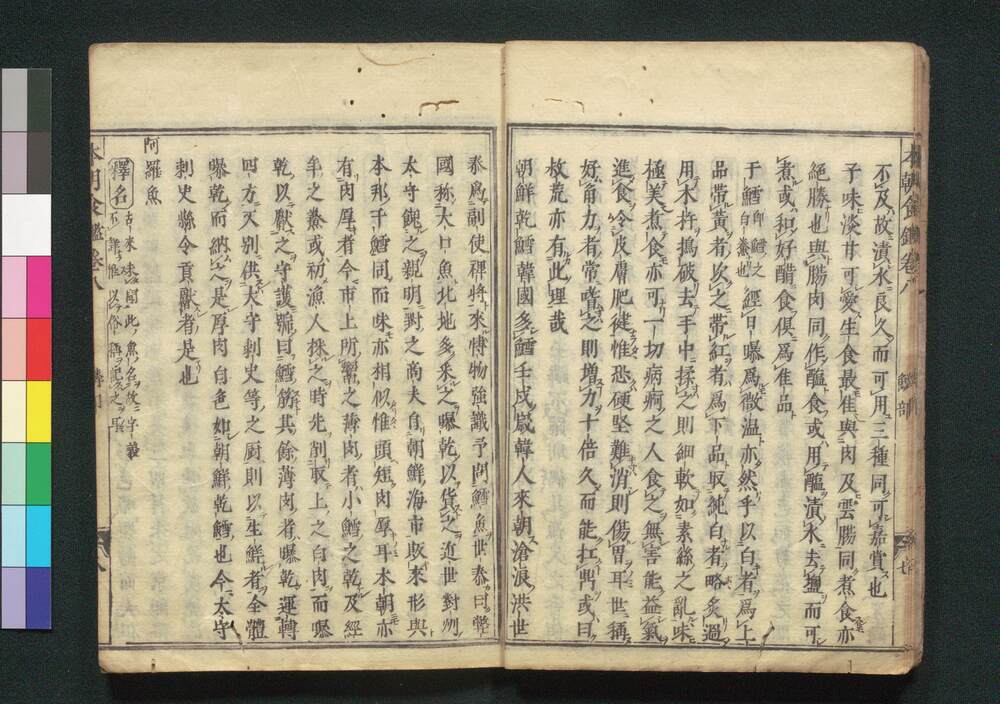 不及故漬水良久而可用三種同可嘉賞也
子味淡甘可愛生食最佳與肉及雲腸同煮食亦
絕勝也與腸肉同作醢食或用醢漬水去鹽而可
煮或和好醋食俱為佳品
干鱈 曝為微温亦然乎以白者為上
品帶黃者次之帶紅者為下品取純白者略炙過
用木杵搗破去手中揉之則細軟如素絲之亂味
極美煮食亦可一切病痾之人食之無害能益氣
進食令皮膚肥健惟恐硬堅難消則傷胃耳世稱
好角力者常嗜之則増力十倍久而能扛 或曰
故荒亦有此理哉
朝鮮乾鱈韓國多鱈壬戌歲韓人來朝滄浪洪世
泰為副使裨將來博物強識予問鱈魚世泰曰弊
國稱大口魚北地多采之曝乾以貨之近世對州
太守餽之親明對之商夫自朝鮮海市取來形與
本邦干鱈同而味亦相似惟頭短肉厚耳本朝亦
有肉厚者今市上所鬻之薄肉者小鱈之乾及經
年之 或初漁人采之時先削取上之白肉而曝
乾以獻之守護號曰鱈筋其餘薄肉者曝乾運轉
四方又別供太守刺史等之厨則以生鮮者全體
曝乾而納之是厚肉白色如朝鮮乾鱈也今太守
刺史縣令貢獻者是也
阿羅魚
釋名 古來未聞此魚名故字義
不 惟以俗稱記之 
本朝食鑑卷八